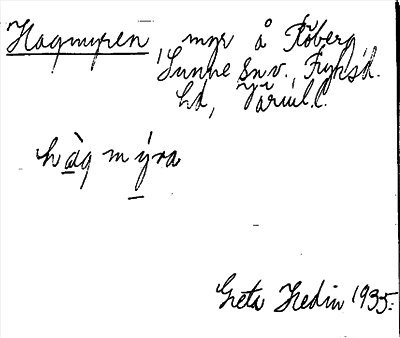 Hagmyren, myr å Röberg,
Sunne sn.v., Fryksd.
hd, Värml.l.
hàg m ýra
Greta Hedin 1935.